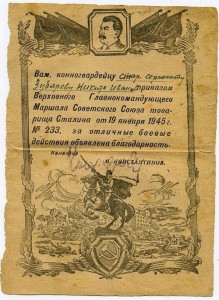 Вам, конногвардейцу Стар. сержанту
Зибареву Никите Иван. приказом
Верховного Главнокомандующего
Маршала Советского Союза това-
рища Сталина от 19 января 1945 г.
№ 233, за отличные боевые
действия объявлена благодарность.
М. КОНСТАНТИНОВ.